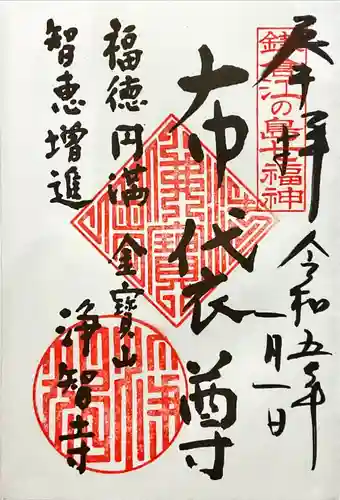 奉拝
令和五年
一月一日
鎌倉江の島七福神
布袋尊
福徳円満
金寶山
智恵増進
浄智寺